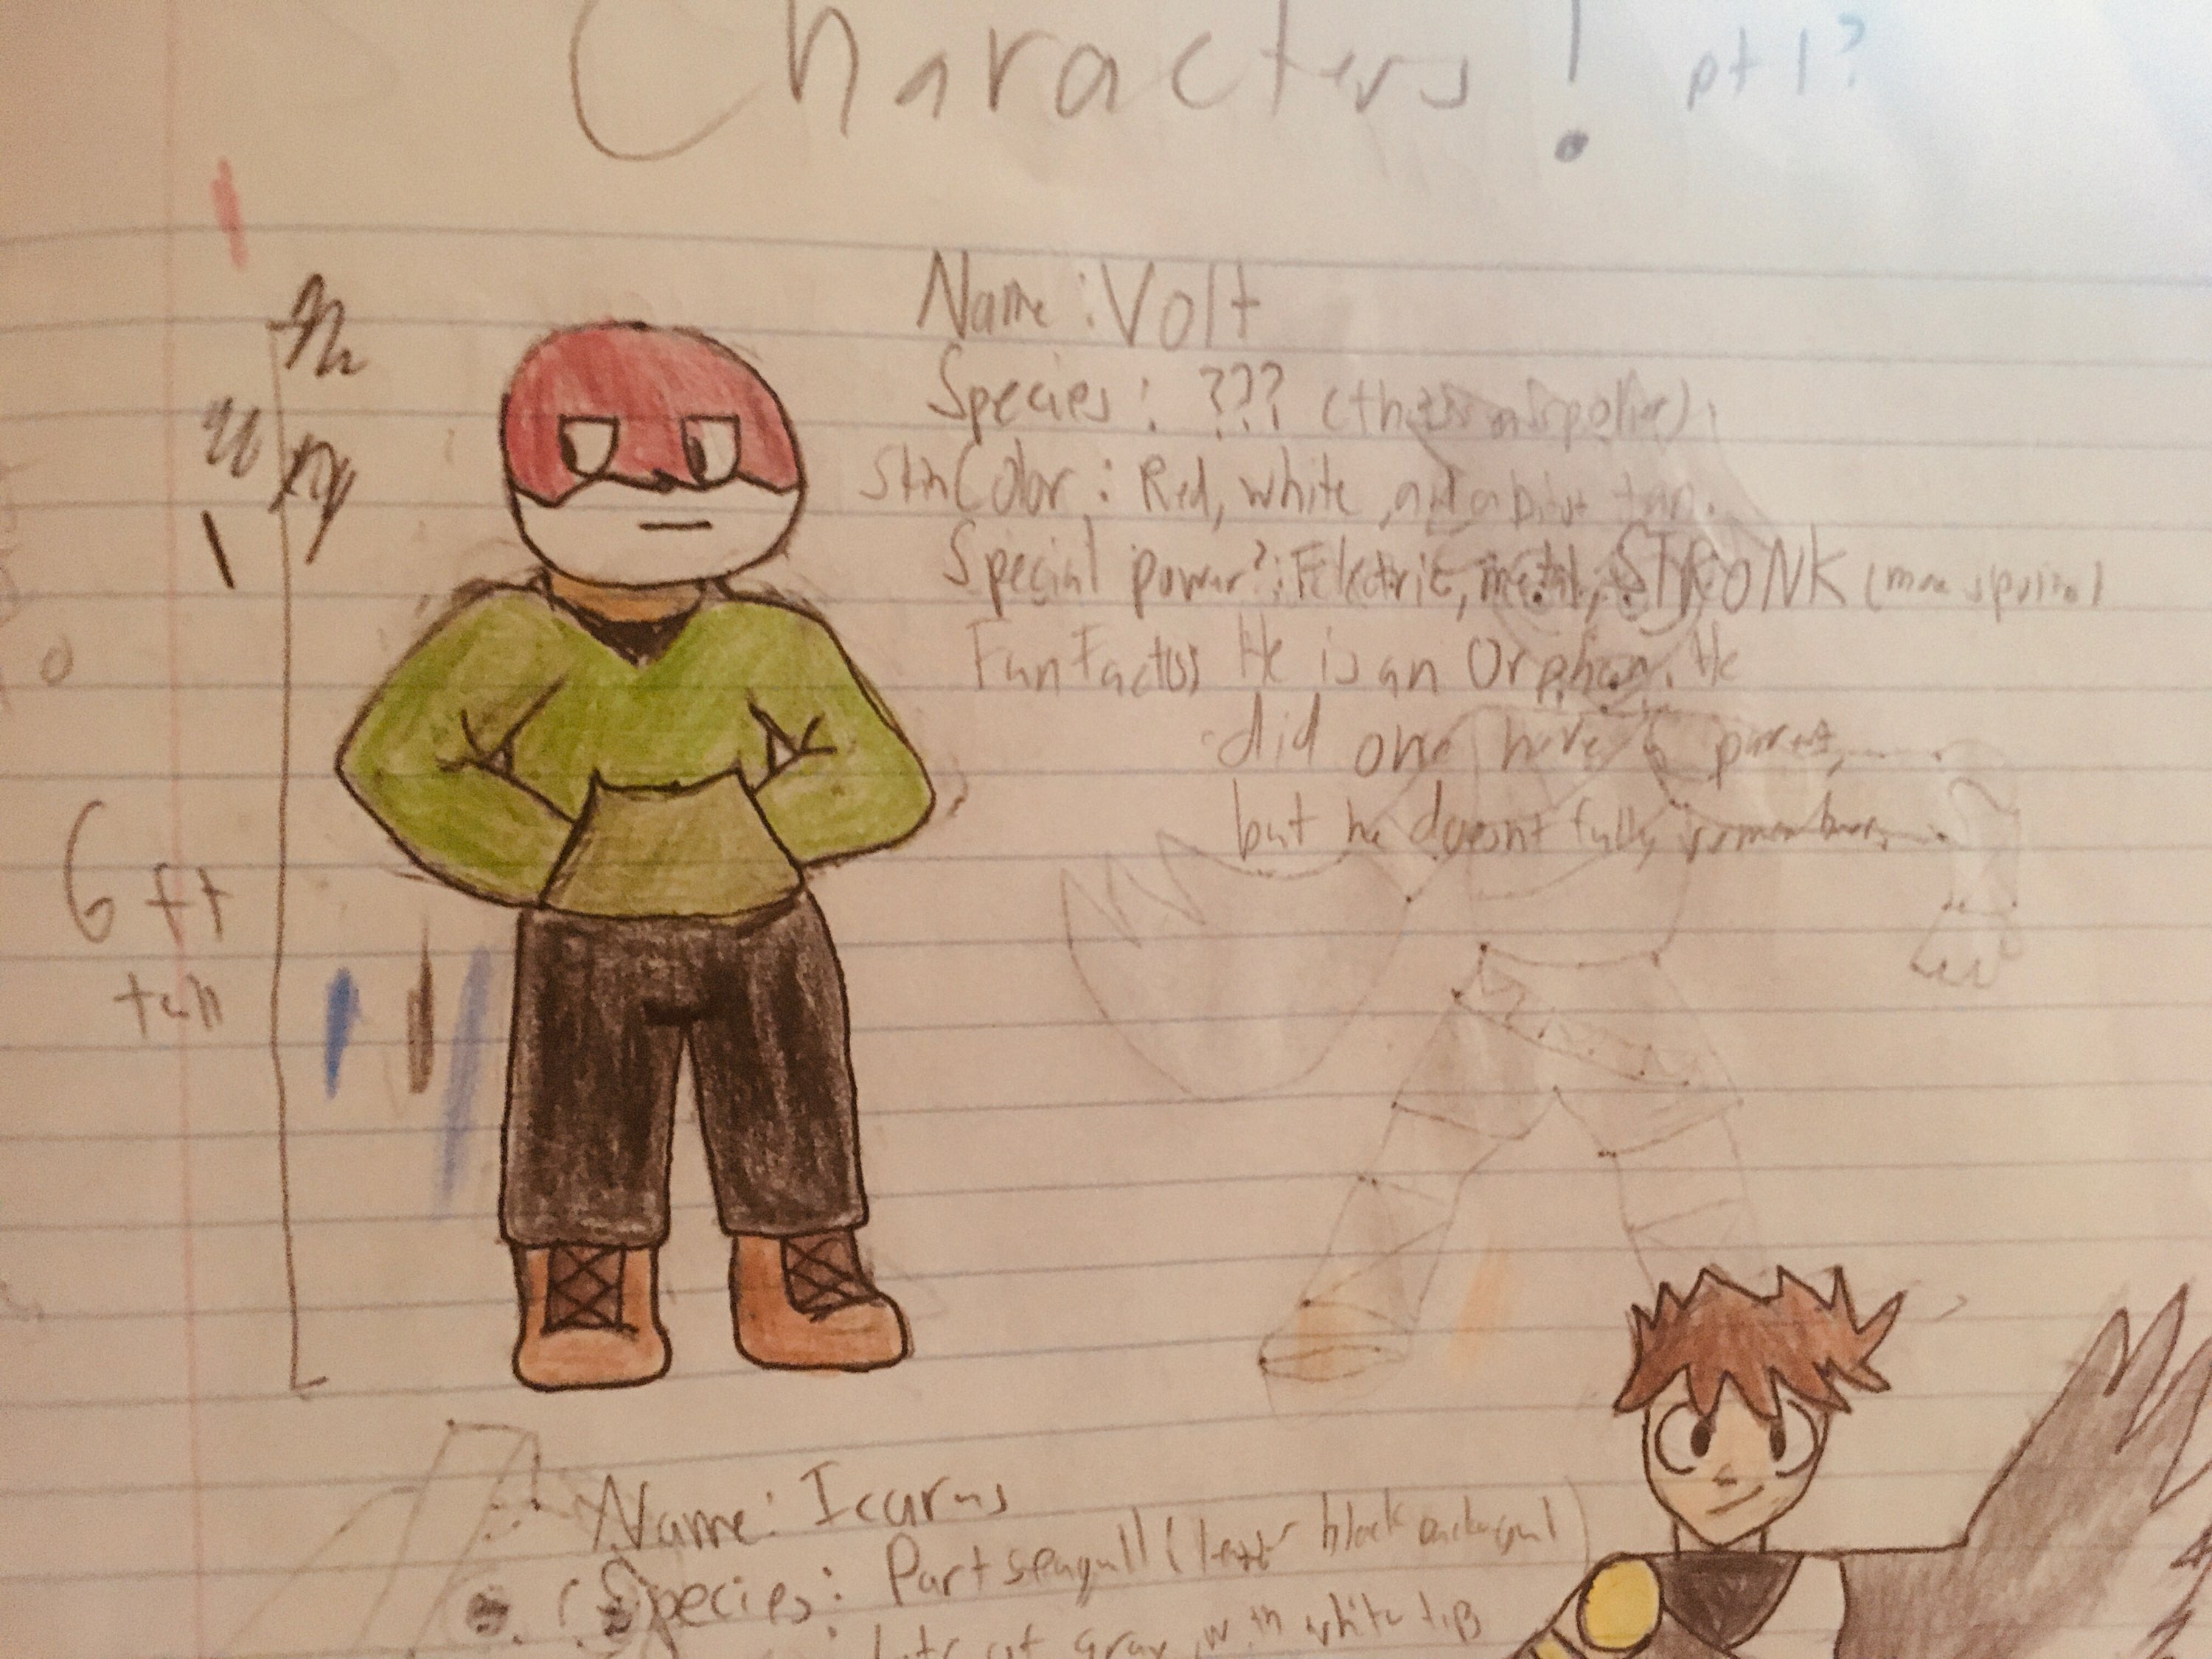 Characters! pt 1?
Name: Volt
Species: ??? (thats a spoiler)
Skin Color: Red, white, and a bit of tan.
Special power?: Electric, metal, STRONK
Fun Facts: He is an Orphan. He
did once have parents,
but he doesnt fully remember
6 ft
tall
Name: Icarus
Species: Part seagull (lesser black backed gull)
gray with white tips